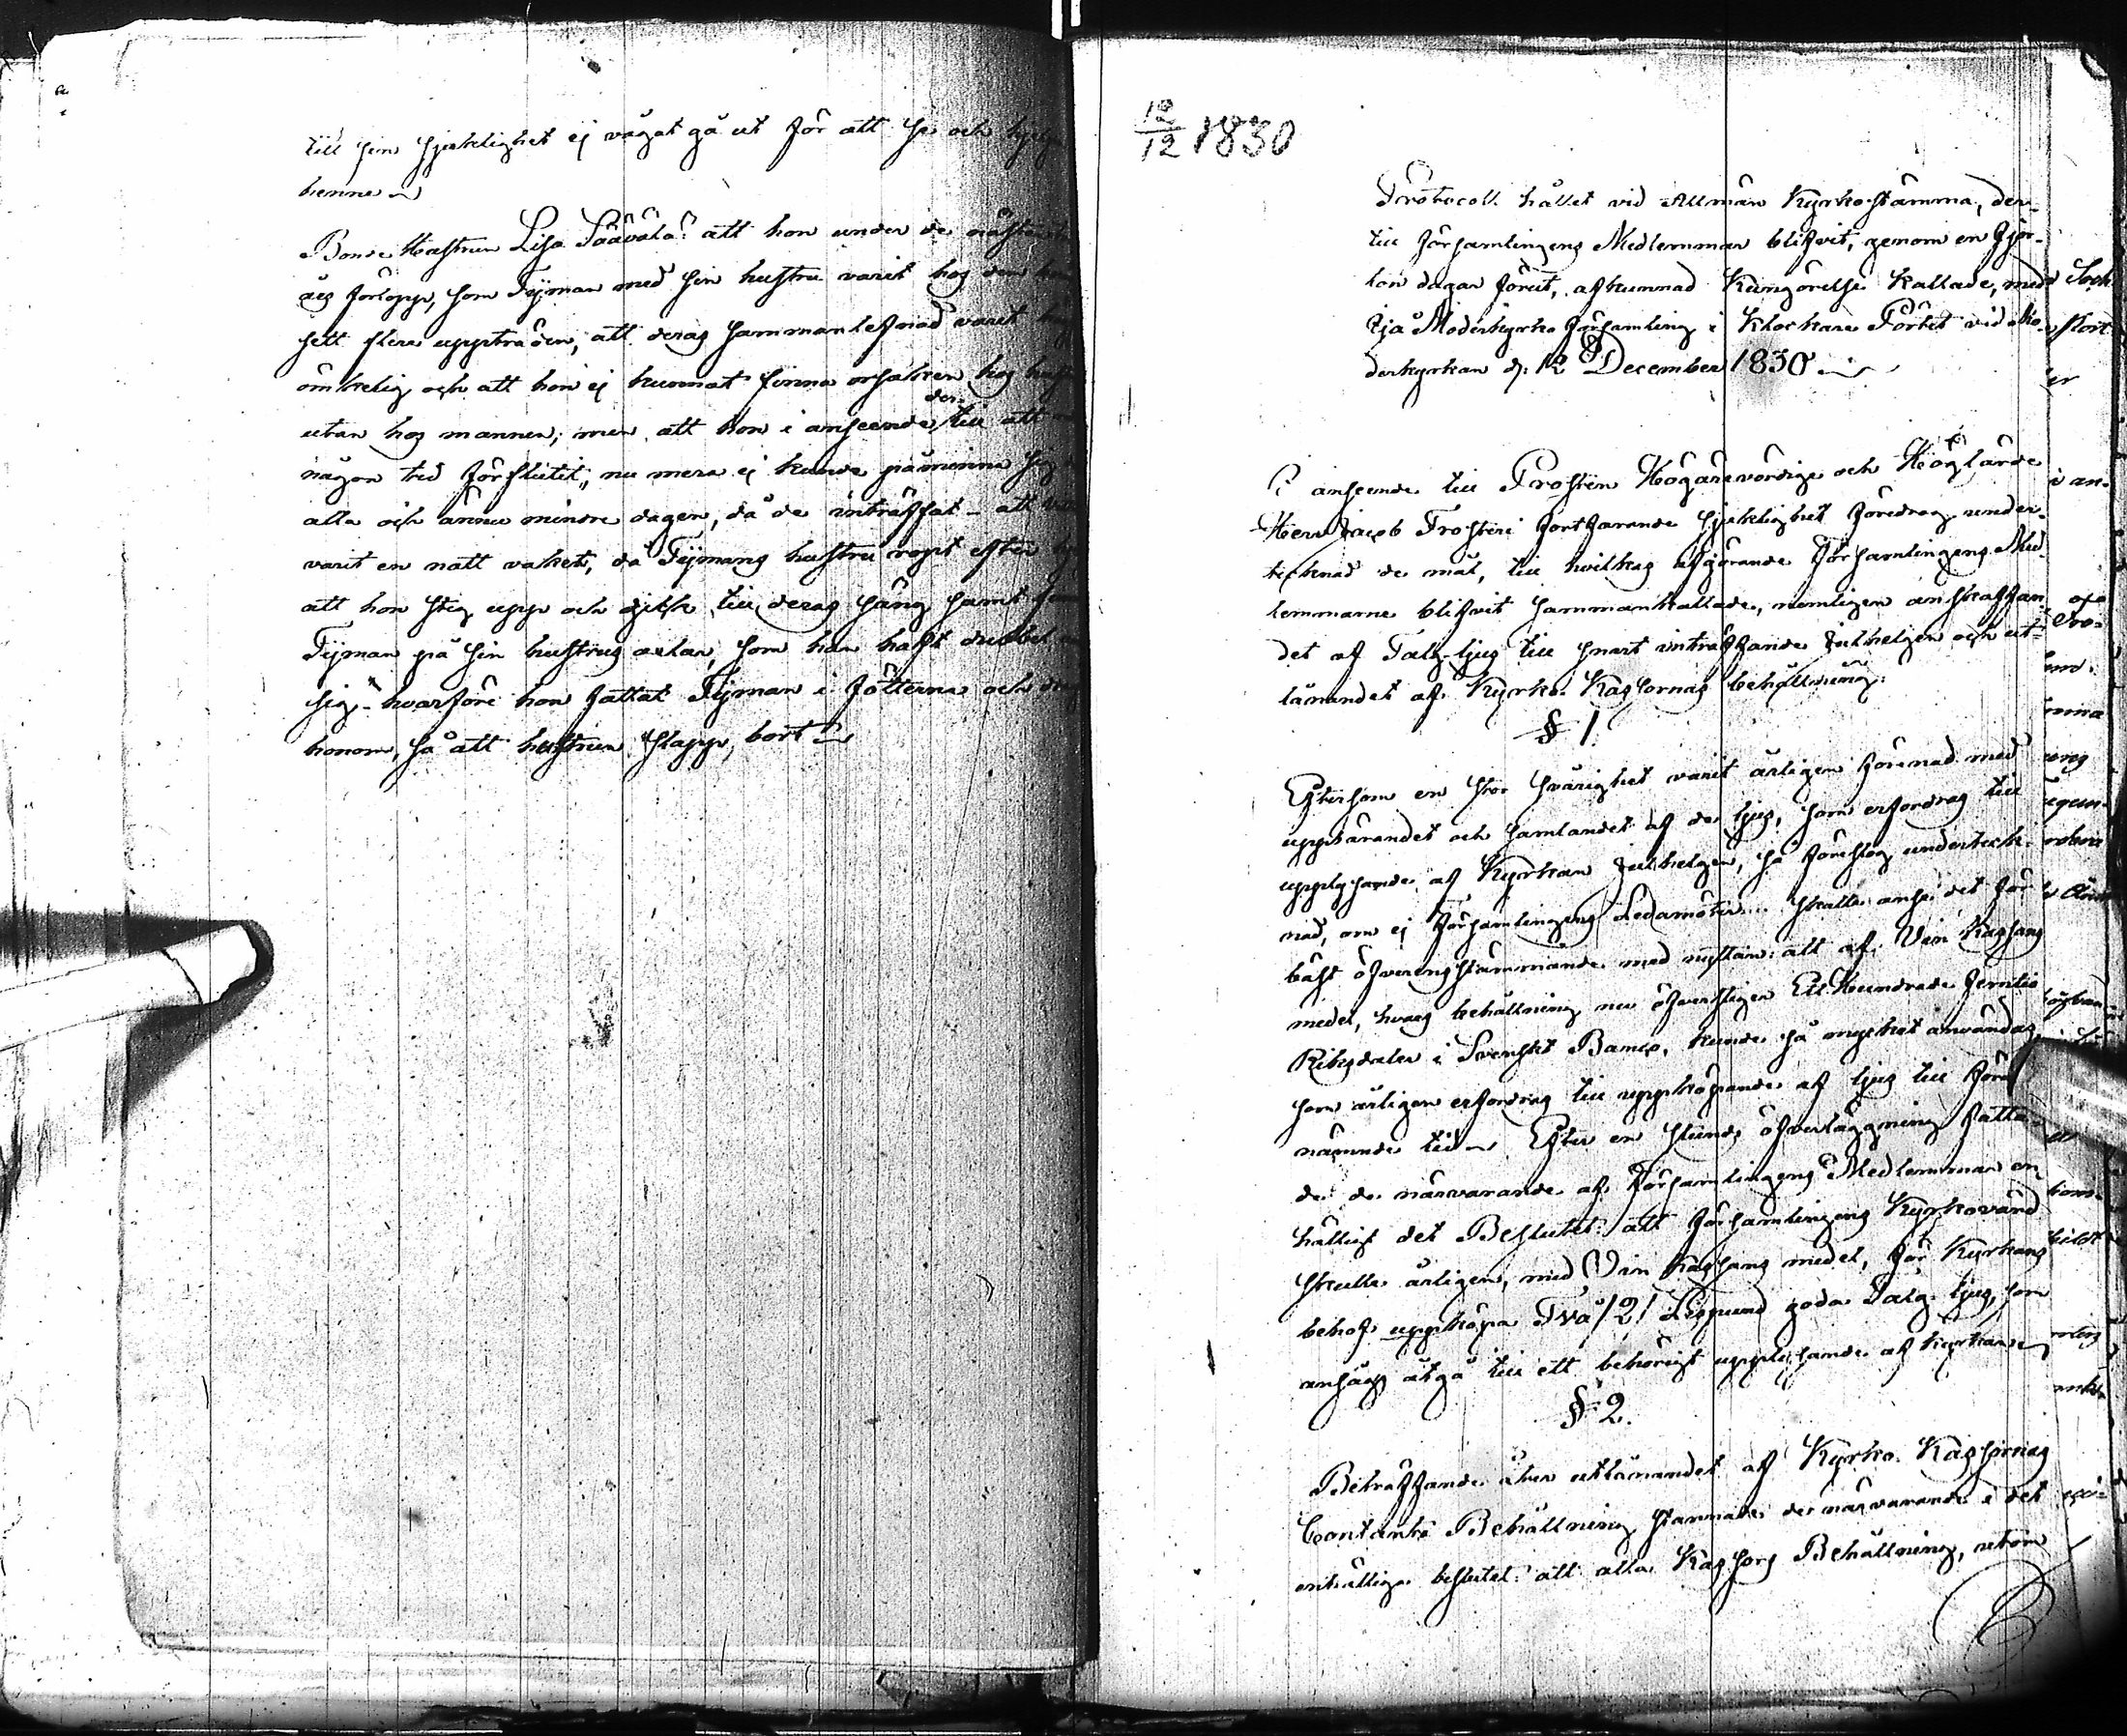 till sin sjuklighet ej vågat gå ut för att se och hjelpa
henne
Bonde Hustrun Lisa Säävälä: att hon under de
års förlopp, som Tijman med sin hustru varit hos
sett flera uppträden, att deras sammanlefnad varit
ömkelig och att hon ej kunnat finna orsaken hos
der-
utan hos mannen; men att hon i anseende till att
någon tid förflutit, nu mera ej kunde påminna sig
alla och ännu mindre dagen, då de inträffat – att
varit en natt vaken, då Tijmans hustru ropt efter
att hon steg upp och gick till deras säng samt
Tijman på sin hustrus axlar, som han haft dubbel
sig – hvarföre hon fattat Tijman i fötterna och
honom, så att hustrun slapp bort
12/12 1830
Protocoll hållet vid Allmän Kyrkostämma, der-
till församlingens Medlemmar blifvit, genom en fjor-
ton dagar förut, afkunnad Kungörelse kallade, med
Ijå Moderkyrko församling i Klockare Pörtet vid Mo-
derkyrkan d: 12 December 1830
I anseende till Prosten Högärevördige och Höglärde
Herr Jacob Frosteri fortfarande sjuklighet föredrog under-
tecknad de mål, till hvilkas afgörande Församlingens Med-
lemmarne blifvit sammankallade, nemligen anskaffan-
det af Talg-ljus till snart inträffande Julhelgen och ut-
lånandet af Kyrko-Kassornas behållning:
§ 1.
Eftersom en stor svårighet varit årligen förenad med
uppbärandet och samlandet af de ljus, som erfordras till
upplysande af Kyrkan Julhelgen, så föreslog underteck-
nad, om ej Församlingens Ledamöter skulle anse det för
bäst öfverensstämmande med nyttan: att af Vin Kassans
medel, hvars behållning nu öfverstiger Ett Hundrade femtio
Riksdaler i Svenskt Banco, kunde så mycket användas,
som årligen erfordras till uppköpande af ljus till före
nämnde tid. Efter en stunds öfverläggning fatta-
de de närvarande af Församlingens Medlemmar en-
hälligt det Beslutet: att församlingens Kyrkovärd
skulle årligen, med Vin Kassans medel, för Kyrkans
behof uppköpa Två /2/ Lispund goda Talg ljus, som
ansågs åtgå till ett behörigt upplysande af kyrkan
§ 2.
Beträffande åter utlånandet af Kyrko-Kassornas
Contanta Behållning stannade de närvarande i det
enhälliga beslutet: att alla Kassors Behållning, utom